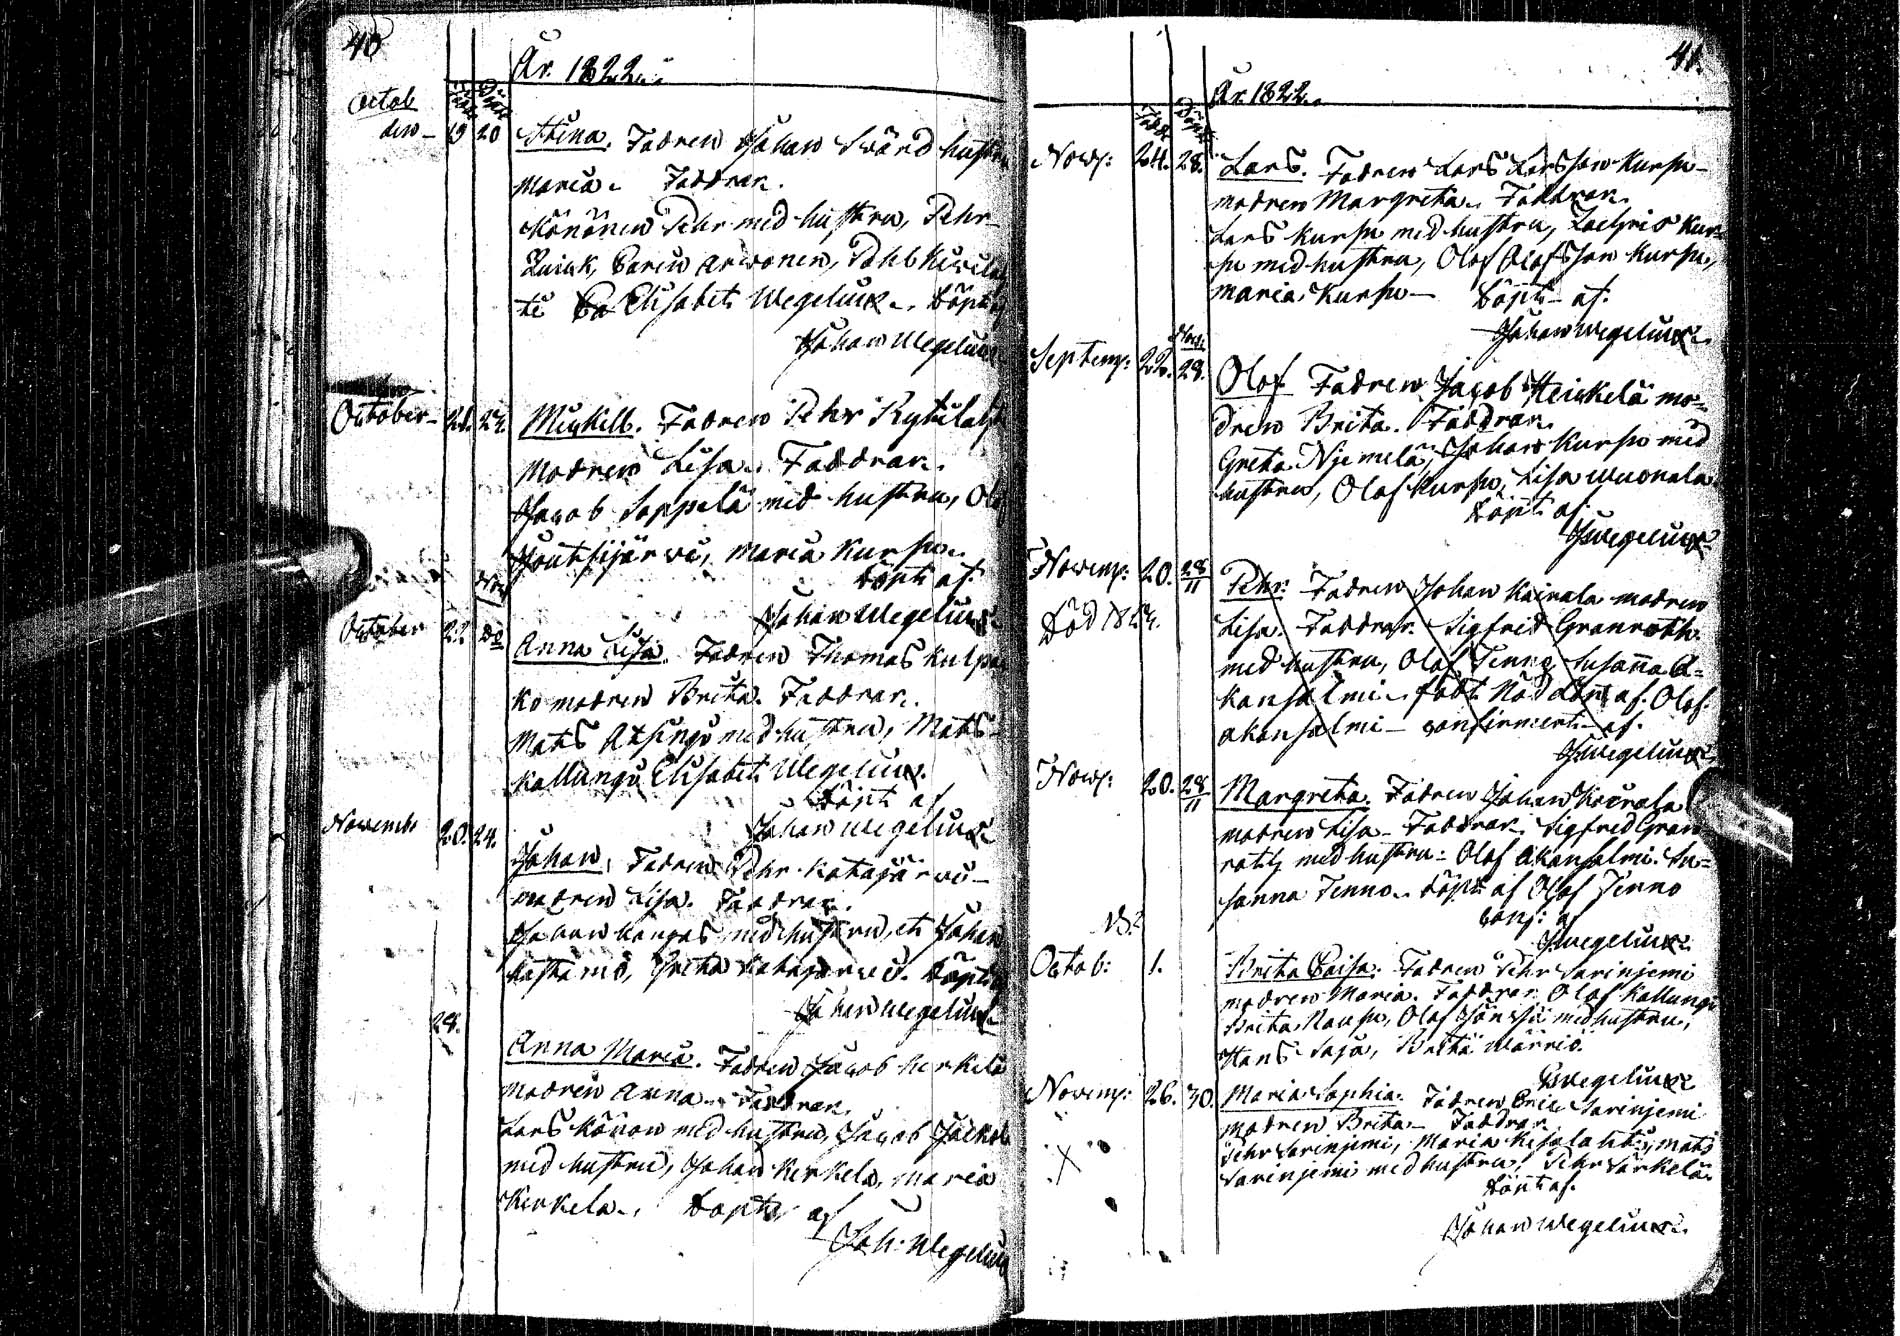 40
År 1822.
Octob
dito 19 20 Stina. Fadren Johan Swärd hustru
Maria. Faddrar.
Könönen Pehr med hustru, Pehr
Caisa Elisabet Wegelius. Döpt af
Johan Wegelius
October 21. 27. Mickell. Fadren Pehr
Modren Lisa. Faddrar.
Jacob Soppela med hustru, Olof
Joutsijärwi, Maria Kursu.
Döpt af.
Johan Wegelius
October 22 Anna Lisa. Fadren Thomas Kulpa
ko modren Brita. Faddrar.
Mats Axsingi med hustru, Mats
Kallungi Elisabet Wegelius.
Döpt af
Johan Wegelius
Novemb 20. 24.
Johan. Fadren Pehr Katajärwi
modren Lisa. Faddrar.
Johan Kangas med hustru, et Johan
Greta Katajärwi. Döpt
Johan Wegelius
28.
Anna Maria. Fadren Jacob Kerkelä
modren Anna. Faddrar.
Lars Könön med hustru, Jacob
med hustru, Johan Kerkela, Maria
Kerkela. Döpt af
Joh. Wegelius
41.
År 1822.
Född Döpt
Nov: 24. 28. Lars. Fadren Lars Larsson Kursu
modren Margreta. Faddrar.
Lars Kursu med hustru, Zachris Kur-
su med hustru, Olof Olofsson Kursu,
Maria Kursu Döpt af.
Johan Wegelius
Septemp: 22. 28. Olof Fadren Jacob Heickelä mo-
dren Brita. Faddrar.
Greta Njemelä, Johan Kursu med
hustru, Olof Kursu, Lisa Wuonala
Döpt af.
JWegelius
Novemp: 20. 28/11 Pehr. Fadren Johan Kairala modren
Död 1822. Lisa. Faddrar. Sigfred Granroth
med hustru, Olof Tenno, Susanna A-
kansalmi. född Nöd döpt af. Olof
Akansalmi confirmert af.
JWegelius
Nov: 20. 28/11 Margreta. Fadren Johan Kairala
modren Lisa Faddrar. Sigfred Gran
roth med hustru: Olof Akansalmi. Su-
sanna Tenno. Döpt af Olof Tenno
conf: af
JWegelius
Octob: 1. Brita Caisa. Fadren Pehr Sarinjemi
modren Maria. Faddrar Olof Kallungi
Brita Kausu, Olof med hustru,
Hans Saja, Brita Wärriö.
JWegelius
Novemp: 26. 30. Maria Sophia. Fadren Eric Sarinjemi
modren Brita Faddrar
Pehr Sarinjemi, Maria Kesälahti, Mats
Sarinjemi med hustru, Pehr Särkelä.
Döpt af.
Johan Wegelius.